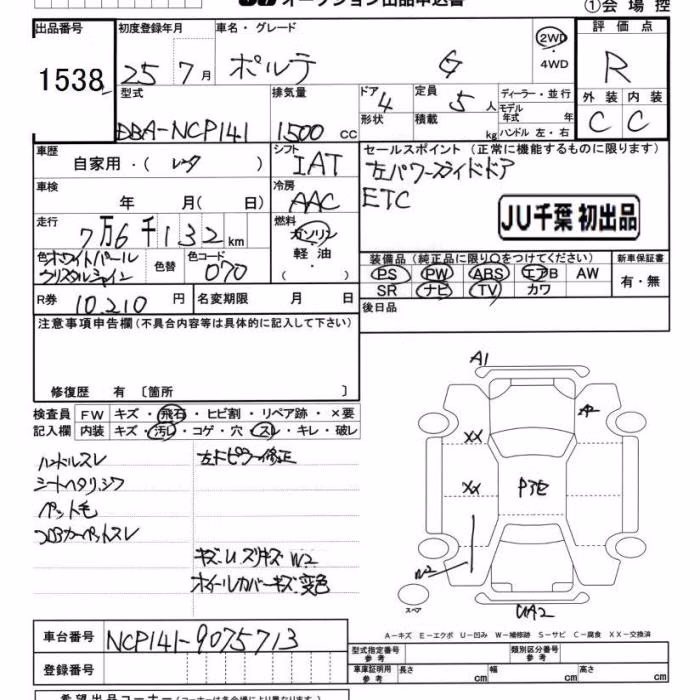 オークション出品申込書
①会場控
出品番号 初度登録年月 車名・グレード 評価点
1538 25 7月 ポルテ G 2WD 4WD R
型式 排気量 ドア 4 定員 5人 ディーラー・並行 外装 内装
形状 積載 kg モデル年式 年 ハンドル 左・右
DBA-NCP141 1500cc C C
車歴 自家用・( ) シフト IAT セールスポイント (正常に機能するものに限ります)
左パワースライドドア
車検 年 月( 日) 冷房 AAC ETC
JU千葉 初出品
走行 7万6千132km 燃料 ガソリン 軽油
色 ホワイトパールクリスタルシャイン 色替 色コード 070
装備品 (純正品に限り○をつけてください) 新車保証書
PS PW ABS エアB AW 有・無
SR ナビ TV カワ
R券 10,210円 名変期限 月 日 後日品
注意事項申告欄 (不具合内容等は具体的に記入して下さい)
修復歴 有 〔箇所 〕
検査員 FW キズ・飛石・ヒビ割・リペア跡・×要
記入欄 内装 キズ・汚れ・コゲ・穴・スレ・キレ・破レ
ハンドルスレ 左Fピラー修正
シートヘタリシワ
ペット毛
フロアカーペットスレ
キズUズリキズW2
ホイールカバーキズ変色
A1
XX
XX
W2
スペア
UA2
A-キズ E-エクボ U-凹み W-補修跡 S-サビ C-腐食 XX-交換済
車台番号 NCP141-9075713
登録番号
型式指定番号 参考 類別区分番号 参考
車庫証明用 参考 長さ cm 幅 cm 高さ cm
希望出品コーナー (コーナーは会場により異なります)